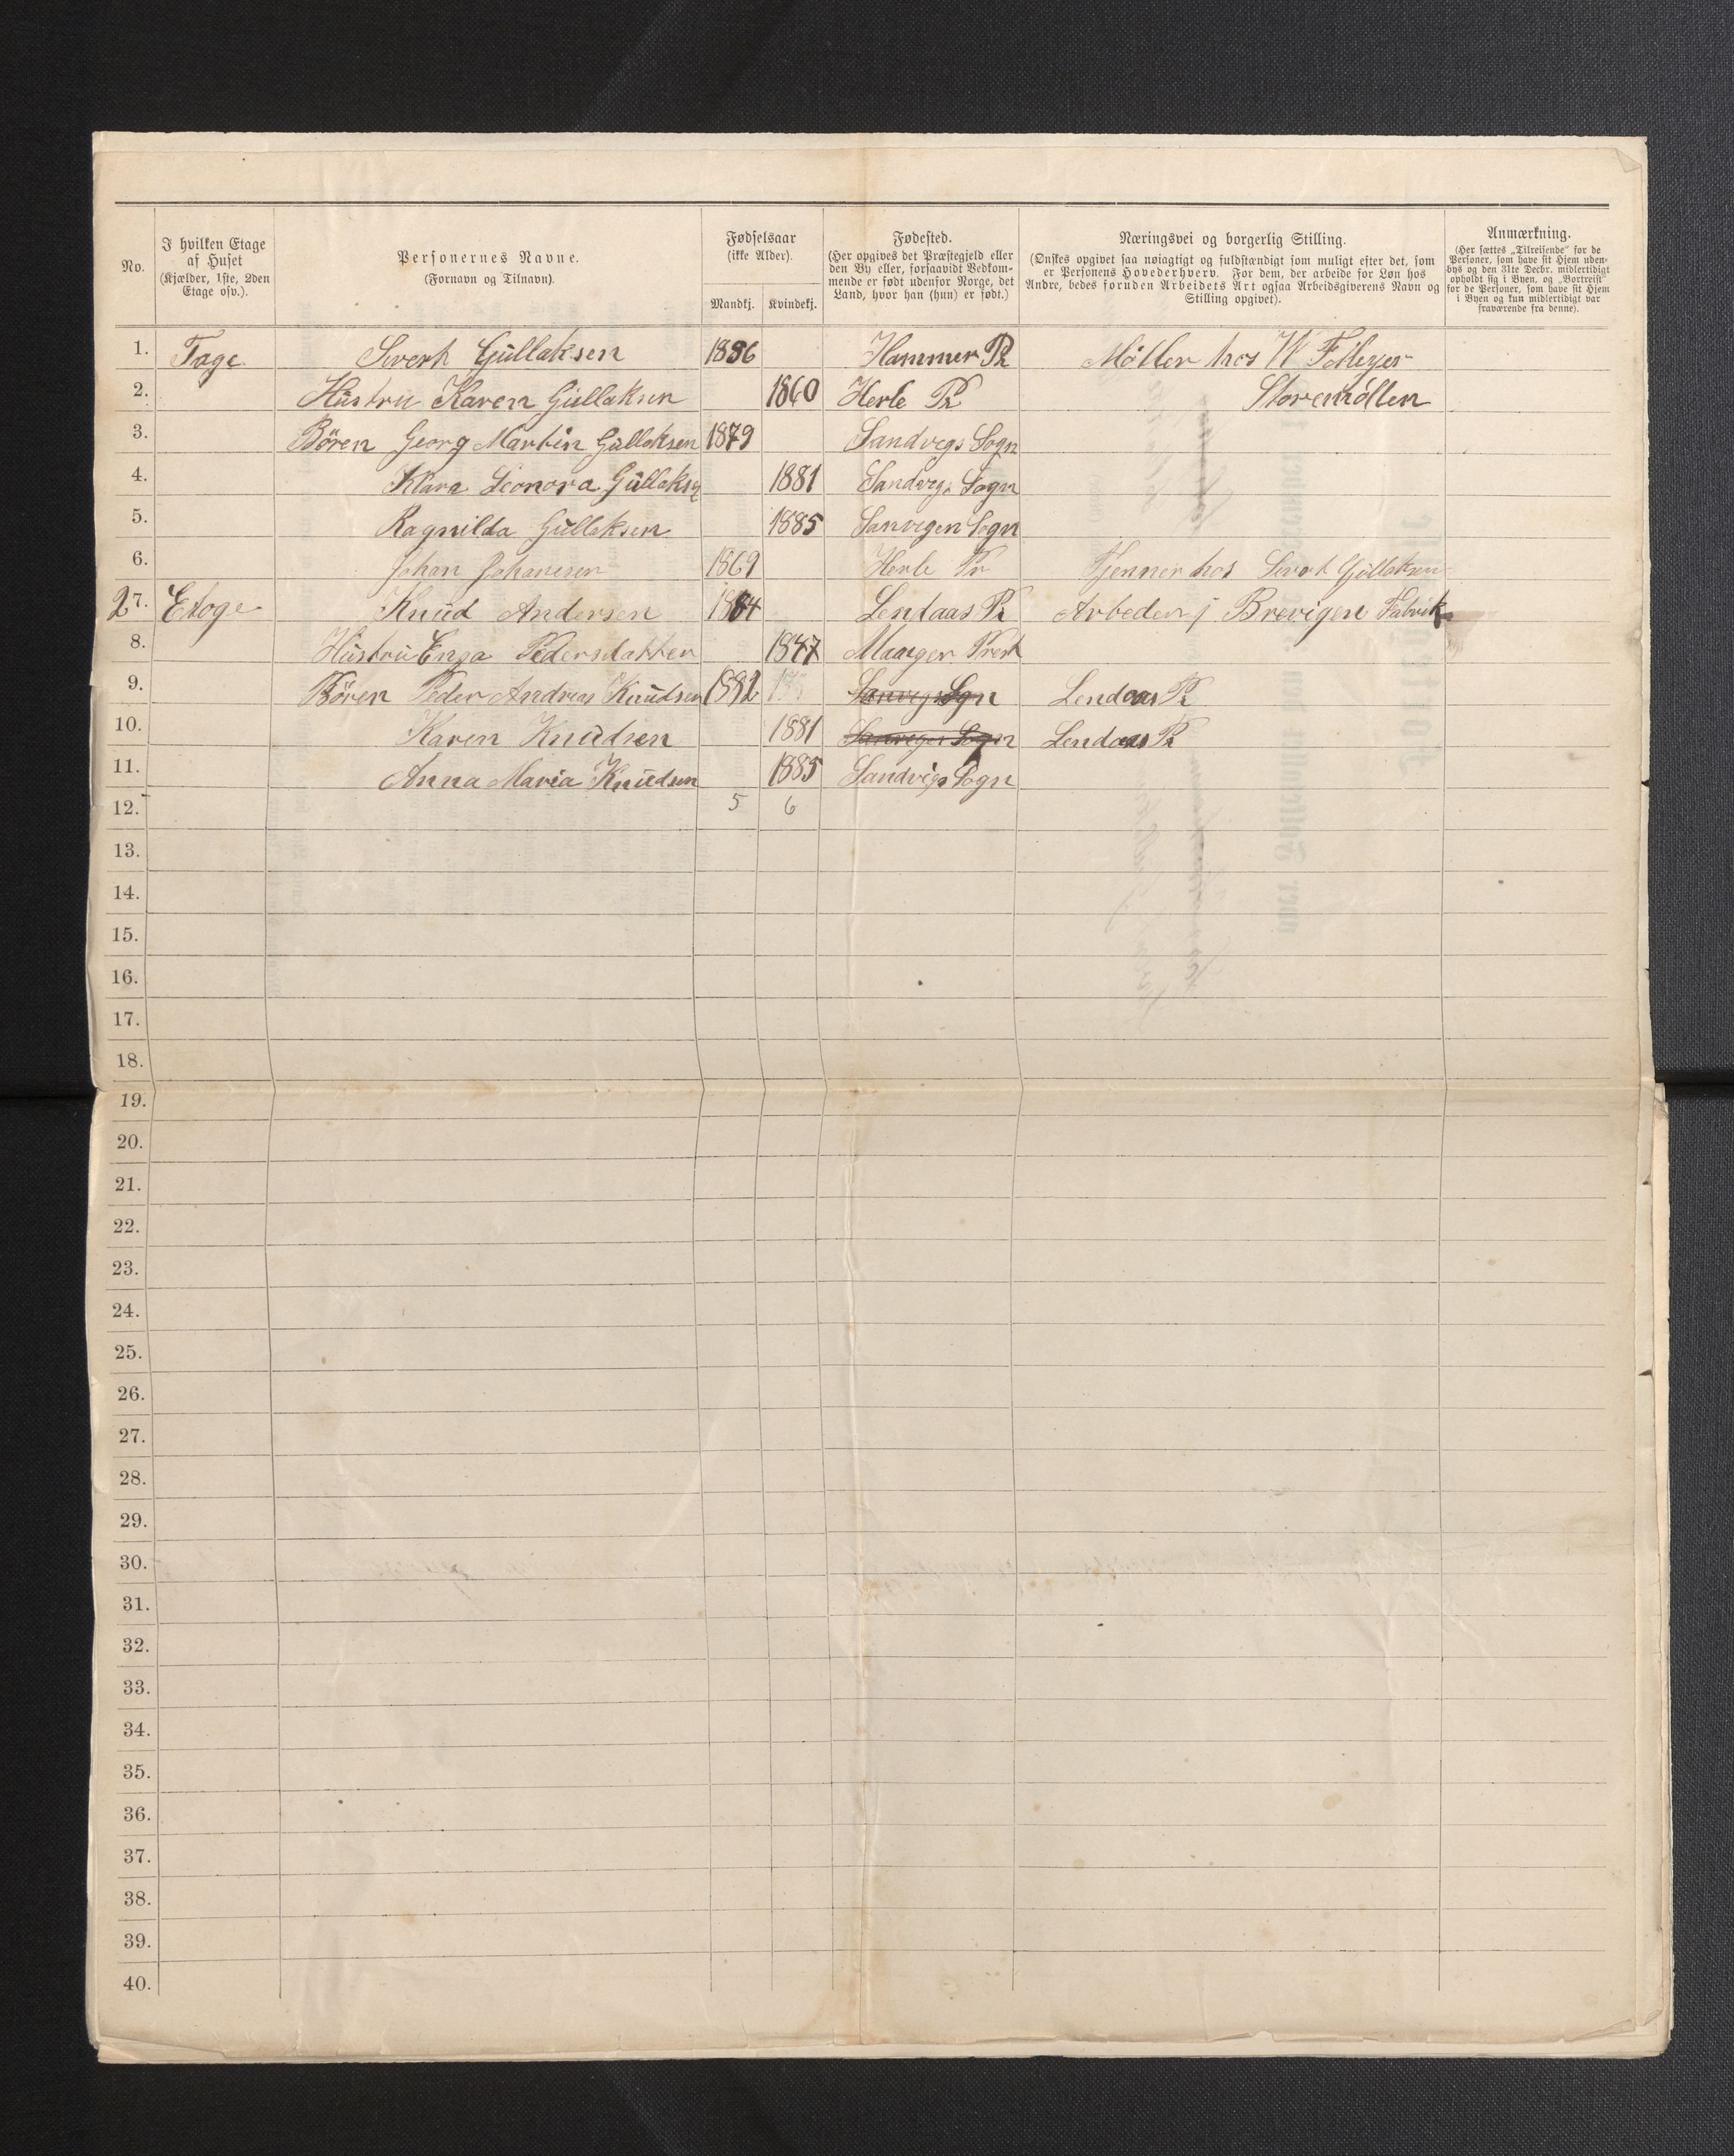 No.
I hvilken Etage af Huset (Kjælder, 1ste, 2den Etage osv.).
Personernes Navne. (Fornavn og Tilnavn).
Fødselsaar (ikke Alder).
Mandkj. Kvindekj.
Fødested. (Her opgives det Præstegjeld eller den By eller, forsaavidt Vedkommende er født udenfor Norge, det Land, hvor han (hun) er født.)
Næringsvei og borgerlig Stilling. (Ønskes opgivet saa nøiagtigt og fuldstændigt som muligt efter det, som er Personens Hovederhverv. For dem, der arbeide for Løn hos Andre, bedes foruden Arbeidets Art ogsaa Arbeidsgiverens Navn og Stilling opgivet).
Anmærkning. (Her sættes „Tilreisende“ for de Personer, som have sit Hjem udenbys og den 31te Decbr. midlertidigt opholdt sig i Byen, og „Bortreist“ for de Personer, som have sit Hjem i Byen og kun midlertidigt var fraværende fra denne).
1. Tage Sivert Gullaksen Hammer Pr Møller hos W
2. Hustru Karen Gullaksen 1860 Herle Pr Storemøllen
3. Børen Georg Martin Gullaksen 1879 Sandvegs Sogn
4. Klara Leonora Gullaksen 1881 Sandvegs Sogn
5. Ragnilda Gullaksen 1885 Sanvegen Sogn
6. Johan Johanesen 1869 Herle Pr Tjenner hos Sivert Gullaksen
2 7. Etage Knud Andersen Lendaas Pr Arbeder j Brevigen Fabrik
8. Hustru Enga Pedersdatter 1847 Manger Prest
9. Børen Peder Andreas Knudsen Sanvegs Sogn Lendaas Pr
10. Karen Knudsen 1881 Sanvegs Sogn Lendaas Pr
11. Anna Maria Knudsen 1885 Sandvigs Sogn
12. 5 6
13.
14.
15.
16.
17.
18.
19.
20.
21.
22.
23.
24.
25.
26.
27.
28.
29.
30.
31.
32.
33.
34.
35.
36.
37.
38.
39.
40.